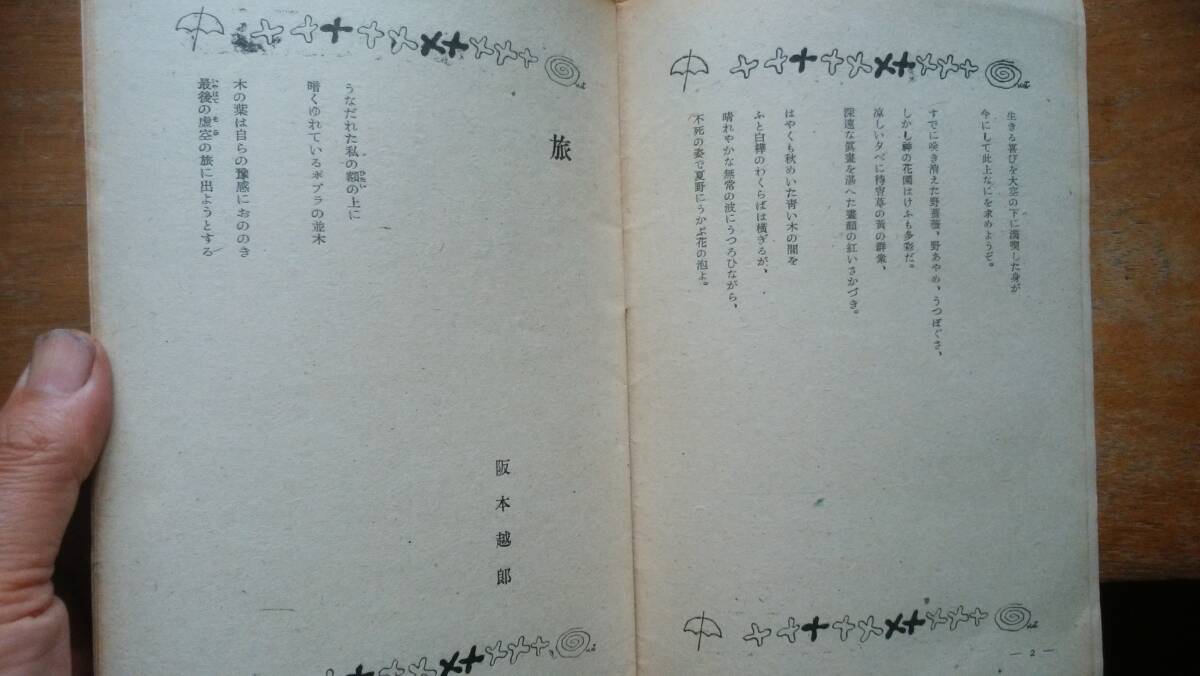 生きる喜びを大空の下に満喫した身が
今にして此上なにを求めようぞ。
すでに咲き消えた野薔薇、野あやめ、うつぼぐさ、
しかし神の花園はけふも多彩だ。
凉しい夕べに待宵草の黄の群衆、
深遠な眞晝を湛へた晝顔の紅いさかづき。
はやくも秋めいた青い木の間を
ふと白樺のわくらばは横ぎるが、
晴れやかな無常の波にうつろひながら、
不死の姿で夏野にうかぶ花の泡よ。
— 2 —
旅
阪本越郎
うなだれた私の額の上に
暗くゆれているポプラの並木
木の葉は自らの豫感におののき
最後の虚空の旅に出ようとする